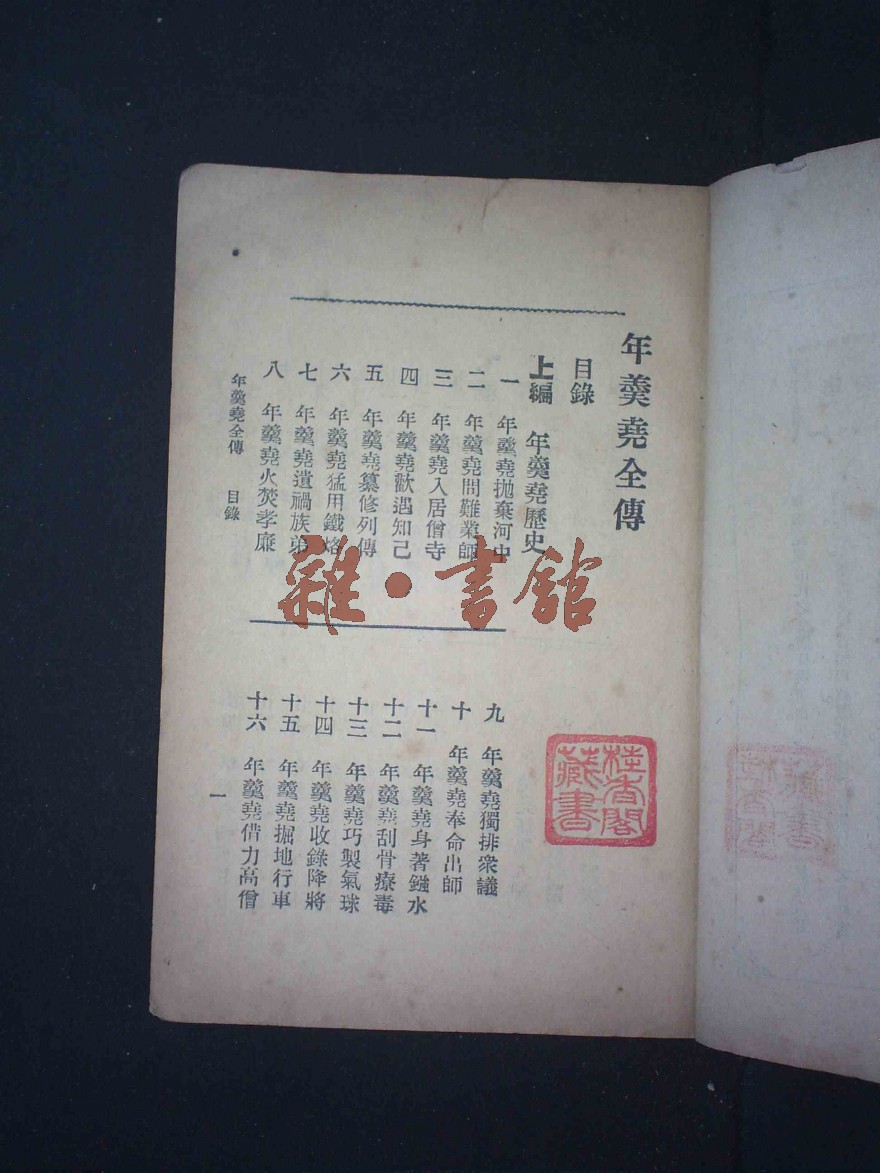 年羹堯全傳
目錄
上編 年羹堯歷史
一 年羹堯拋棄河中
二 年羹堯問難業師
三 年羹堯入居僧寺
四 年羹堯歡遇知己
五 年羹堯纂修列傳
六 年羹堯猛用鐵烙
七 年羹堯遺禍族弟
八 年羹堯火焚孝廉
九 年羹堯獨排衆議
十 年羹堯奉命出師
十一 年羹堯身著鏹水
十二 年羹堯刮骨療毒
十三 年羹堯巧製氣球
十四 年羹堯收錄降將
十五 年羹堯掘地行車
十六 年羹堯借力高僧
年羹堯全傳 目錄
一
雜·書館
桂香閣
藏書